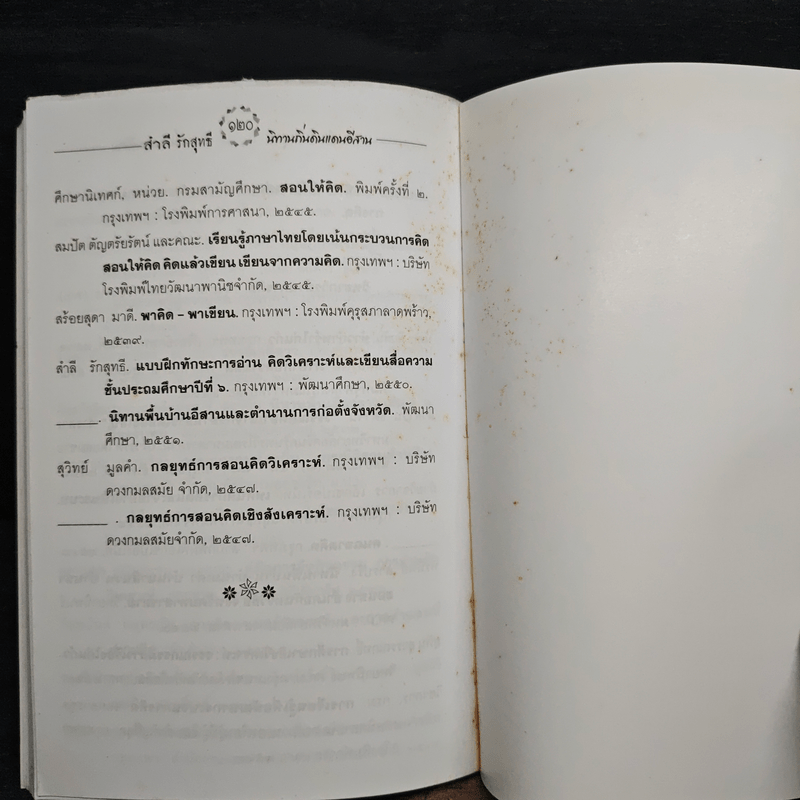 สำลี รักสุทธี ๑๒๐ นิทานถิ่นดินแดนอีสาน
ศึกษานิเทศก์, หน่วย. กรมสามัญศึกษา. สอนให้คิด. พิมพ์ครั้งที่ ๒.
กรุงเทพฯ : โรงพิมพ์การศาสนา, ๒๕๔๕.
สมปัต ตัญตรัยรัตน์ และคณะ. เรียนรู้ภาษาไทยโดยเน้นกระบวนการคิด
สอนให้คิด คิดแล้วเขียน เขียนจากความคิด. กรุงเทพฯ : บริษัท
โรงพิมพ์ไทยวัฒนาพานิชจำกัด, ๒๕๔๕.
สร้อยสุดา มาดี. พาคิด – พาเขียน. กรุงเทพฯ : โรงพิมพ์คุรุสภาลาดพร้าว,
๒๕๓๙.
สำลี รักสุทธี. แบบฝึกทักษะการอ่าน คิดวิเคราะห์และเขียนสื่อความ
ชั้นประถมศึกษาปีที่ ๖. กรุงเทพฯ : พัฒนาศึกษา, ๒๕๕๐.
______. นิทานพื้นบ้านอีสานและตำนานการก่อตั้งจังหวัด. พัฒนา
ศึกษา, ๒๕๕๑.
สุวิทย์ มูลคำ. กลยุทธ์การสอนคิดวิเคราะห์. กรุงเทพฯ : บริษัท
ดวงกมลสมัย จำกัด, ๒๕๔๗.
_______ . กลยุทธ์การสอนคิดเชิงสังเคราะห์. กรุงเทพฯ : บริษัท
ดวงกมลสมัยจำกัด, ๒๕๔๗.